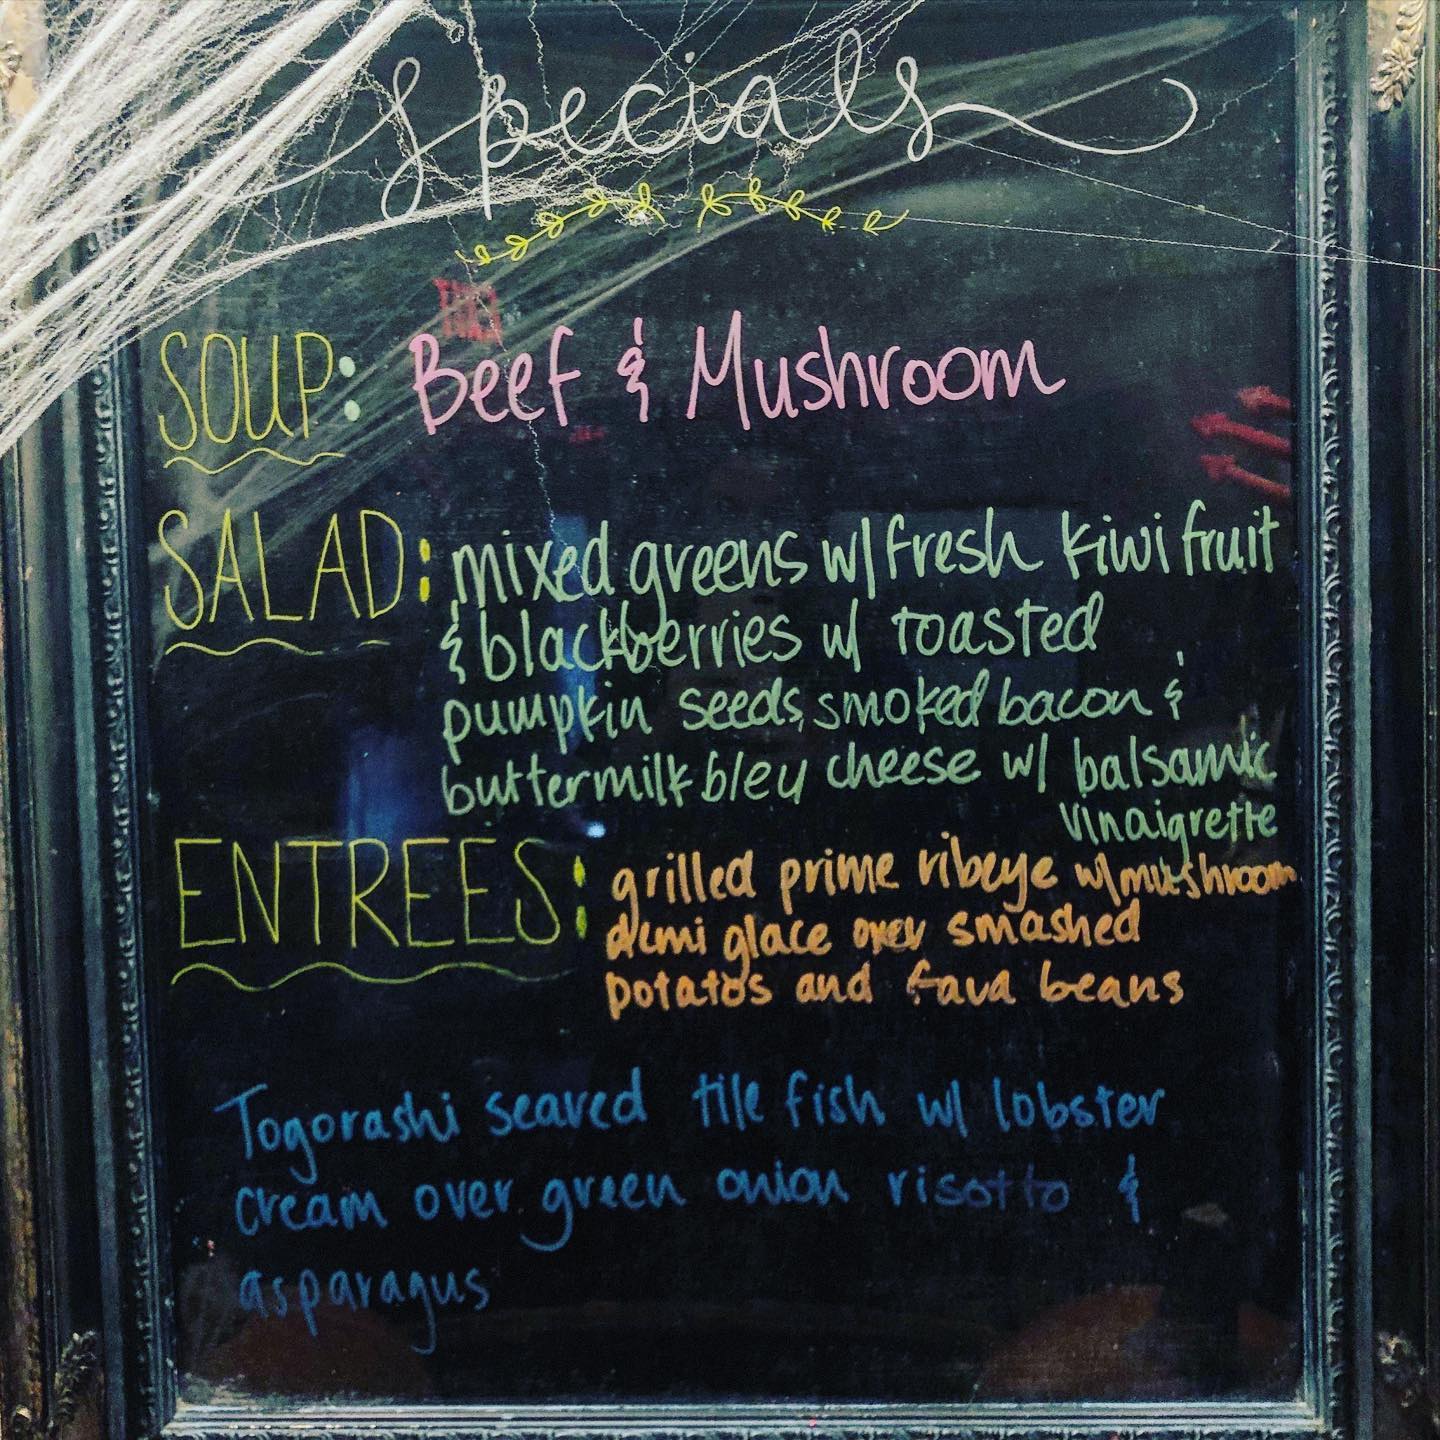 Specials
SOUP: Beef & Mushroom
SALAD: mixed greens w/ fresh kiwi fruit
& blackberries w/ toasted
pumpkin seeds, smoked bacon &
buttermilk bleu cheese w/ balsamic
vinaigrette
ENTREES: grilled prime ribeye w/ mushroom
demi glace over smashed
potatos and fava beans
Togorashi seared tile fish w/ lobster
cream over green onion risotto &
asparagus